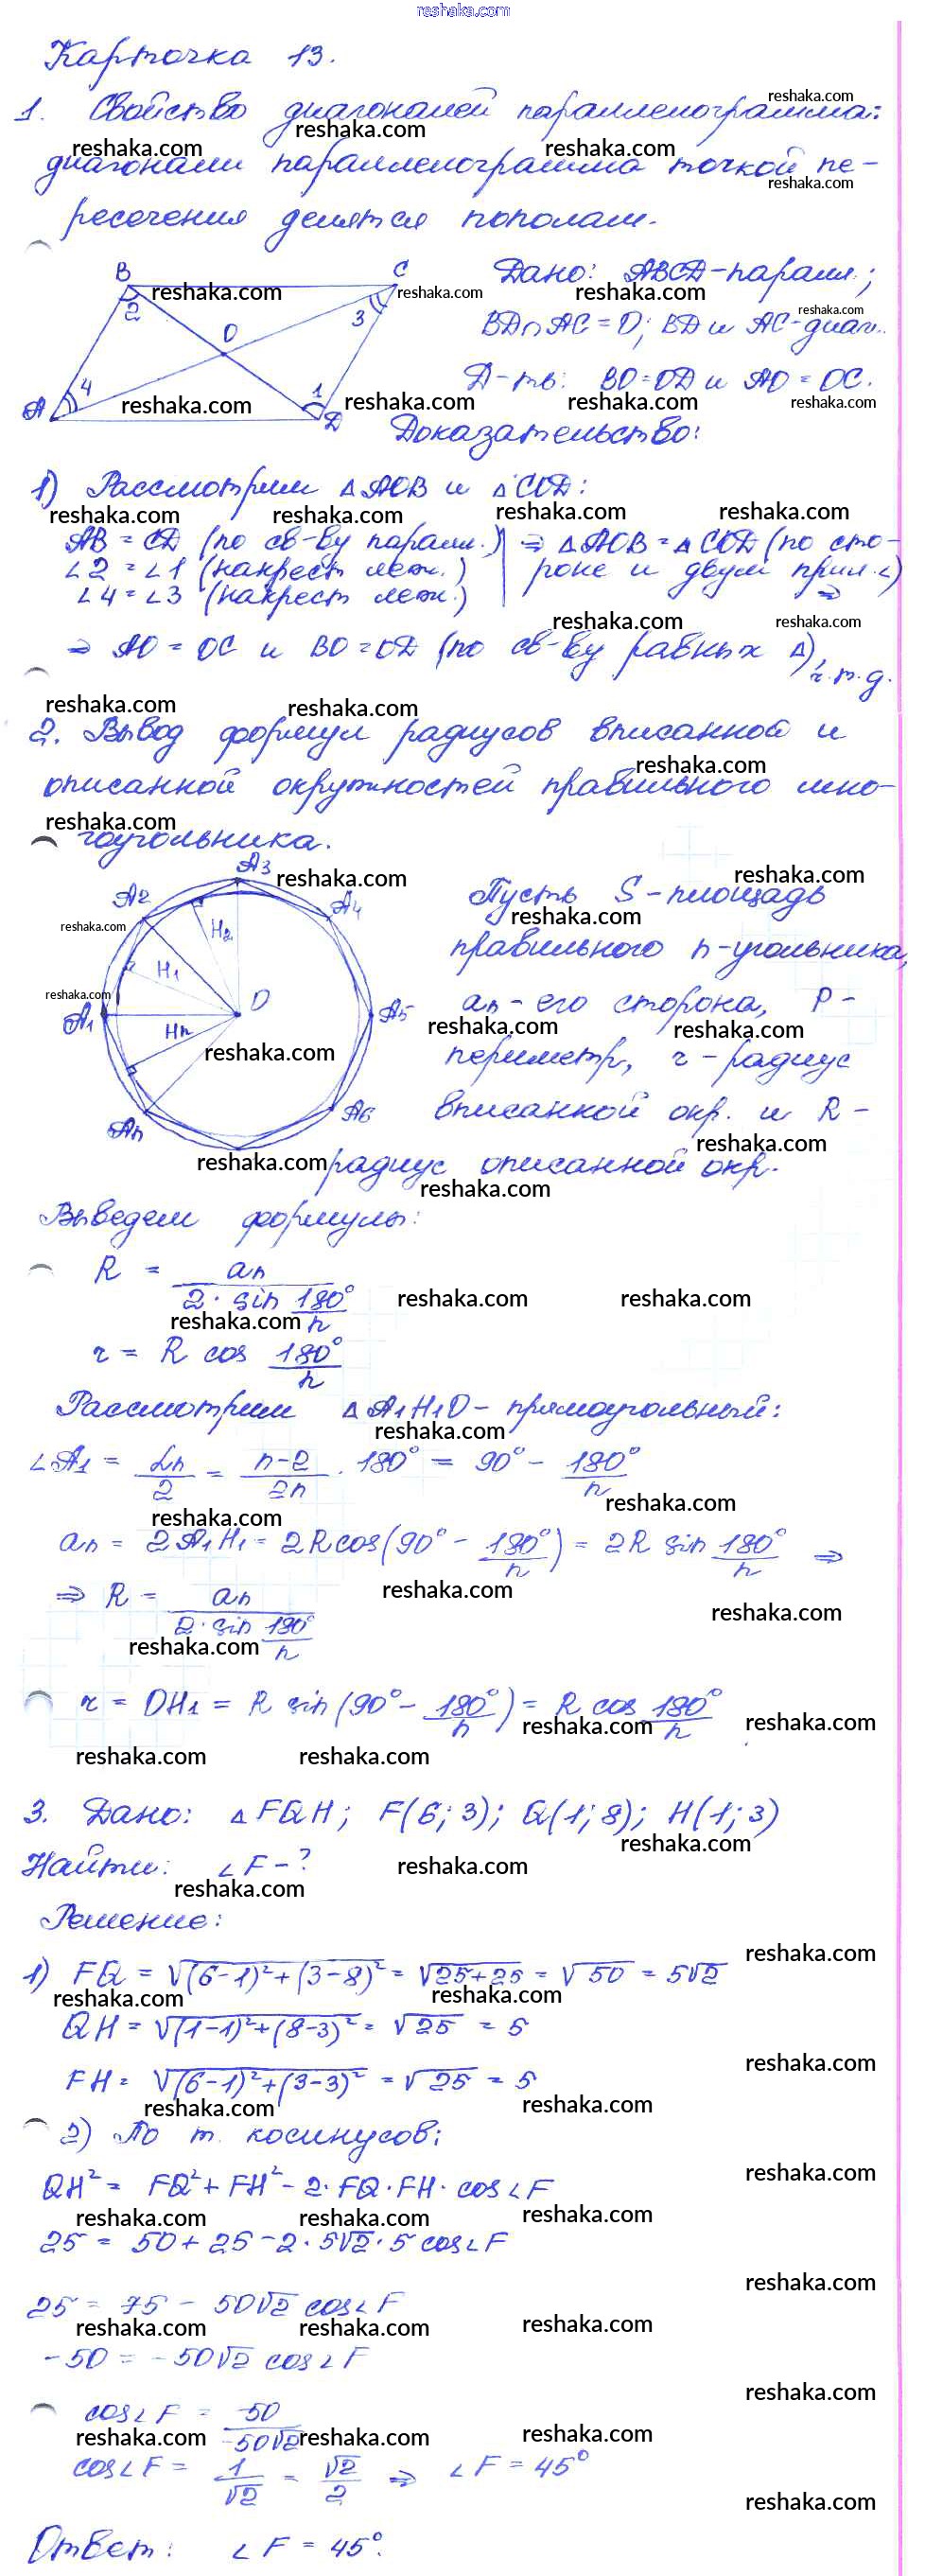 reshaka.com
Карточка 13.
1. Свойство диагоналей параллелограмма:
диагонали параллелограмма точкой пе-
ресечения делятся пополам.
Дано: ABCD - паралл.;
BD∩AC = O; BD и AC - диаг.
Д-ть: BO = OD и AO = OC.
B C 2 3 O 4 1 A D
Доказательство:
1) Рассмотрим △AOB и △COD:
AB = CD (по св-ву паралл.) ⇒ △AOB = △COD (по сто-
∠2 = ∠1 (накрест леж.) роне и двум прил. ∠)
∠4 = ∠3 (накрест леж.) ⇒
⇒ AO = OC и BO = OD (по св-ву равных △), ч.т.д.
2. Вывод формул радиусов вписанной и
описанной окружностей правильного мно-
гоугольника.
A3 A2 A4 H2 H1 O A1 A5 Hn A6 An
Пусть S - площадь
правильного n-угольника,
an - его сторона, P -
периметр, r - радиус
вписанной окр. и R -
радиус описанной окр.
Выведем формулы:
R = an / (2 · sin 180°/n)
r = R cos 180°/n
Рассмотрим △A1H1O - прямоугольный:
∠A1 = αn/2 = (n-2)/2n · 180° = 90° - 180°/n
an = 2A1H1 = 2R cos(90° - 180°/n) = 2R sin 180°/n ⇒
⇒ R = an / (2 · sin 180°/n)
r = OH1 = R sin(90° - 180°/n) = R cos 180°/n
3. Дано: △FQH; F(6; 3); Q(1; 8); H(1; 3)
Найти: ∠F - ?
Решение:
1) FQ = √((6-1)²+(3-8)²) = √(25+25) = √50 = 5√2
QH = √((1-1)²+(8-3)²) = √25 = 5
FH = √((6-1)²+(3-3)²) = √25 = 5
2) По т. косинусов:
QH² = FQ² + FH² - 2·FQ·FH·cos∠F
25 = 50 + 25 - 2·5√2·5 cos∠F
25 = 75 - 50√2 cos∠F
-50 = -50√2 cos∠F
cos∠F = -50 / -50√2
cos∠F = 1/√2 = √2/2 ⇒ ∠F = 45°
Ответ: ∠F = 45°.